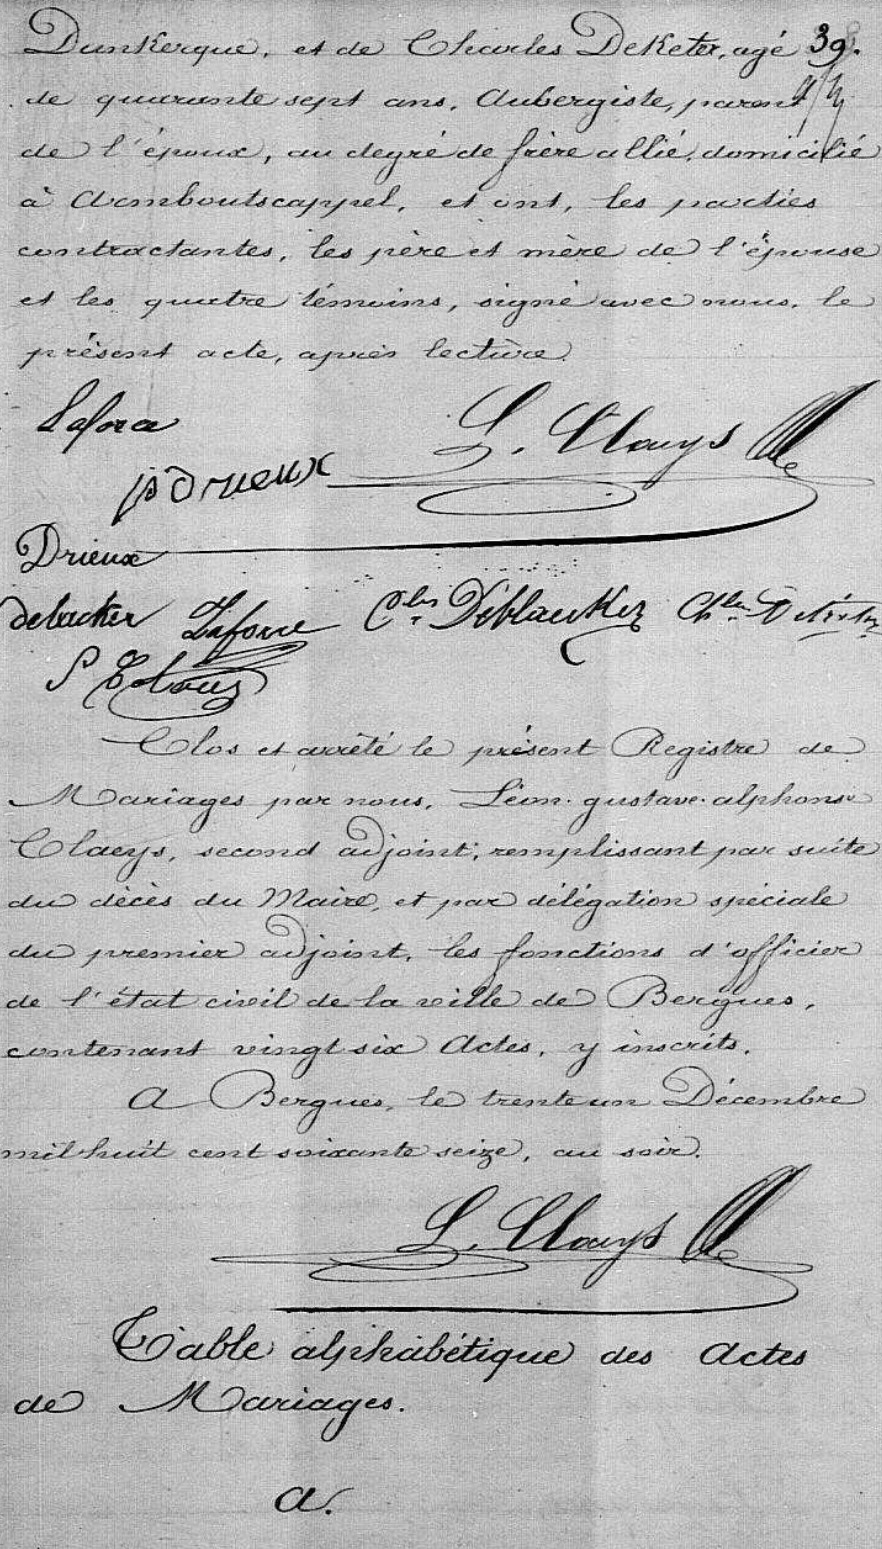 Dunkerque, et de Charles DeKeter, agé 39.
de quarante sept ans, Aubergiste, parent
de l'époux, au degré de frère allié, domicilié
à Armboutscappel, et ont, les parties
contractantes, les père et mère de l'épouse
et les quatre témoins, signé avec nous, le
présent acte, après lecture.
Laforce
L. Claeys
p Drieux
Drieux
debacker Laforce Ch.les Deblauker Ch.les
Clos et arrêté le présent Registre de
Mariages par nous, Léon gustave alphonse
Claeys, second adjoint, remplissant par suite
du décès du Maire, et par délégation spéciale
du premier adjoint, les fonctions d'officier
de l'état civil de la ville de Bergues,
contenant vingt six Actes, y inscrits.
A Bergues, le trente un Décembre
mil huit cent soixante seize, au soir.
L. Claeys
Table alphabétique des Actes
de Mariages.
A.